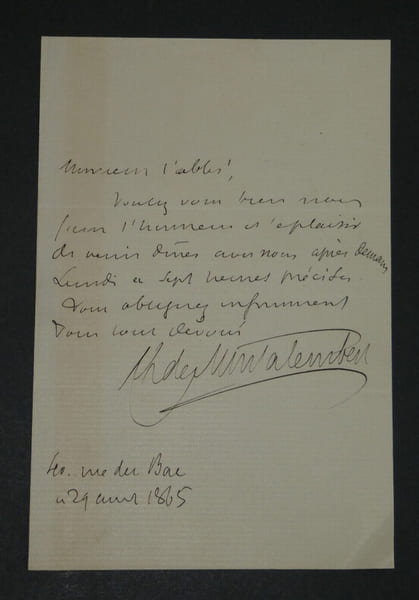 Monsieur l'abbé,
Voulez vous bien nous
faire l'honneur et le plaisir
de venir dîner avec nous après demain
Lundi à sept heures précises.
Vous obligerez infiniment
Votre tout dévoué
Ch de Montalembert
40. rue du Bac
a 29 avril 1865